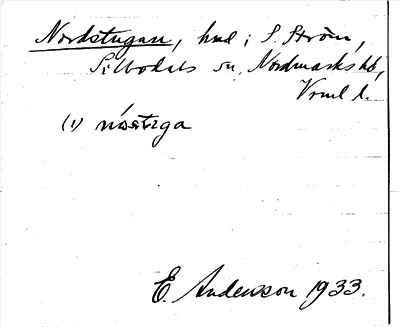 Nordstugan, hmd i S. Ström,
Silbodals sn, Nordmarks hd,
Vrml l.
(1) nóstiga
E. Andersson 1933.